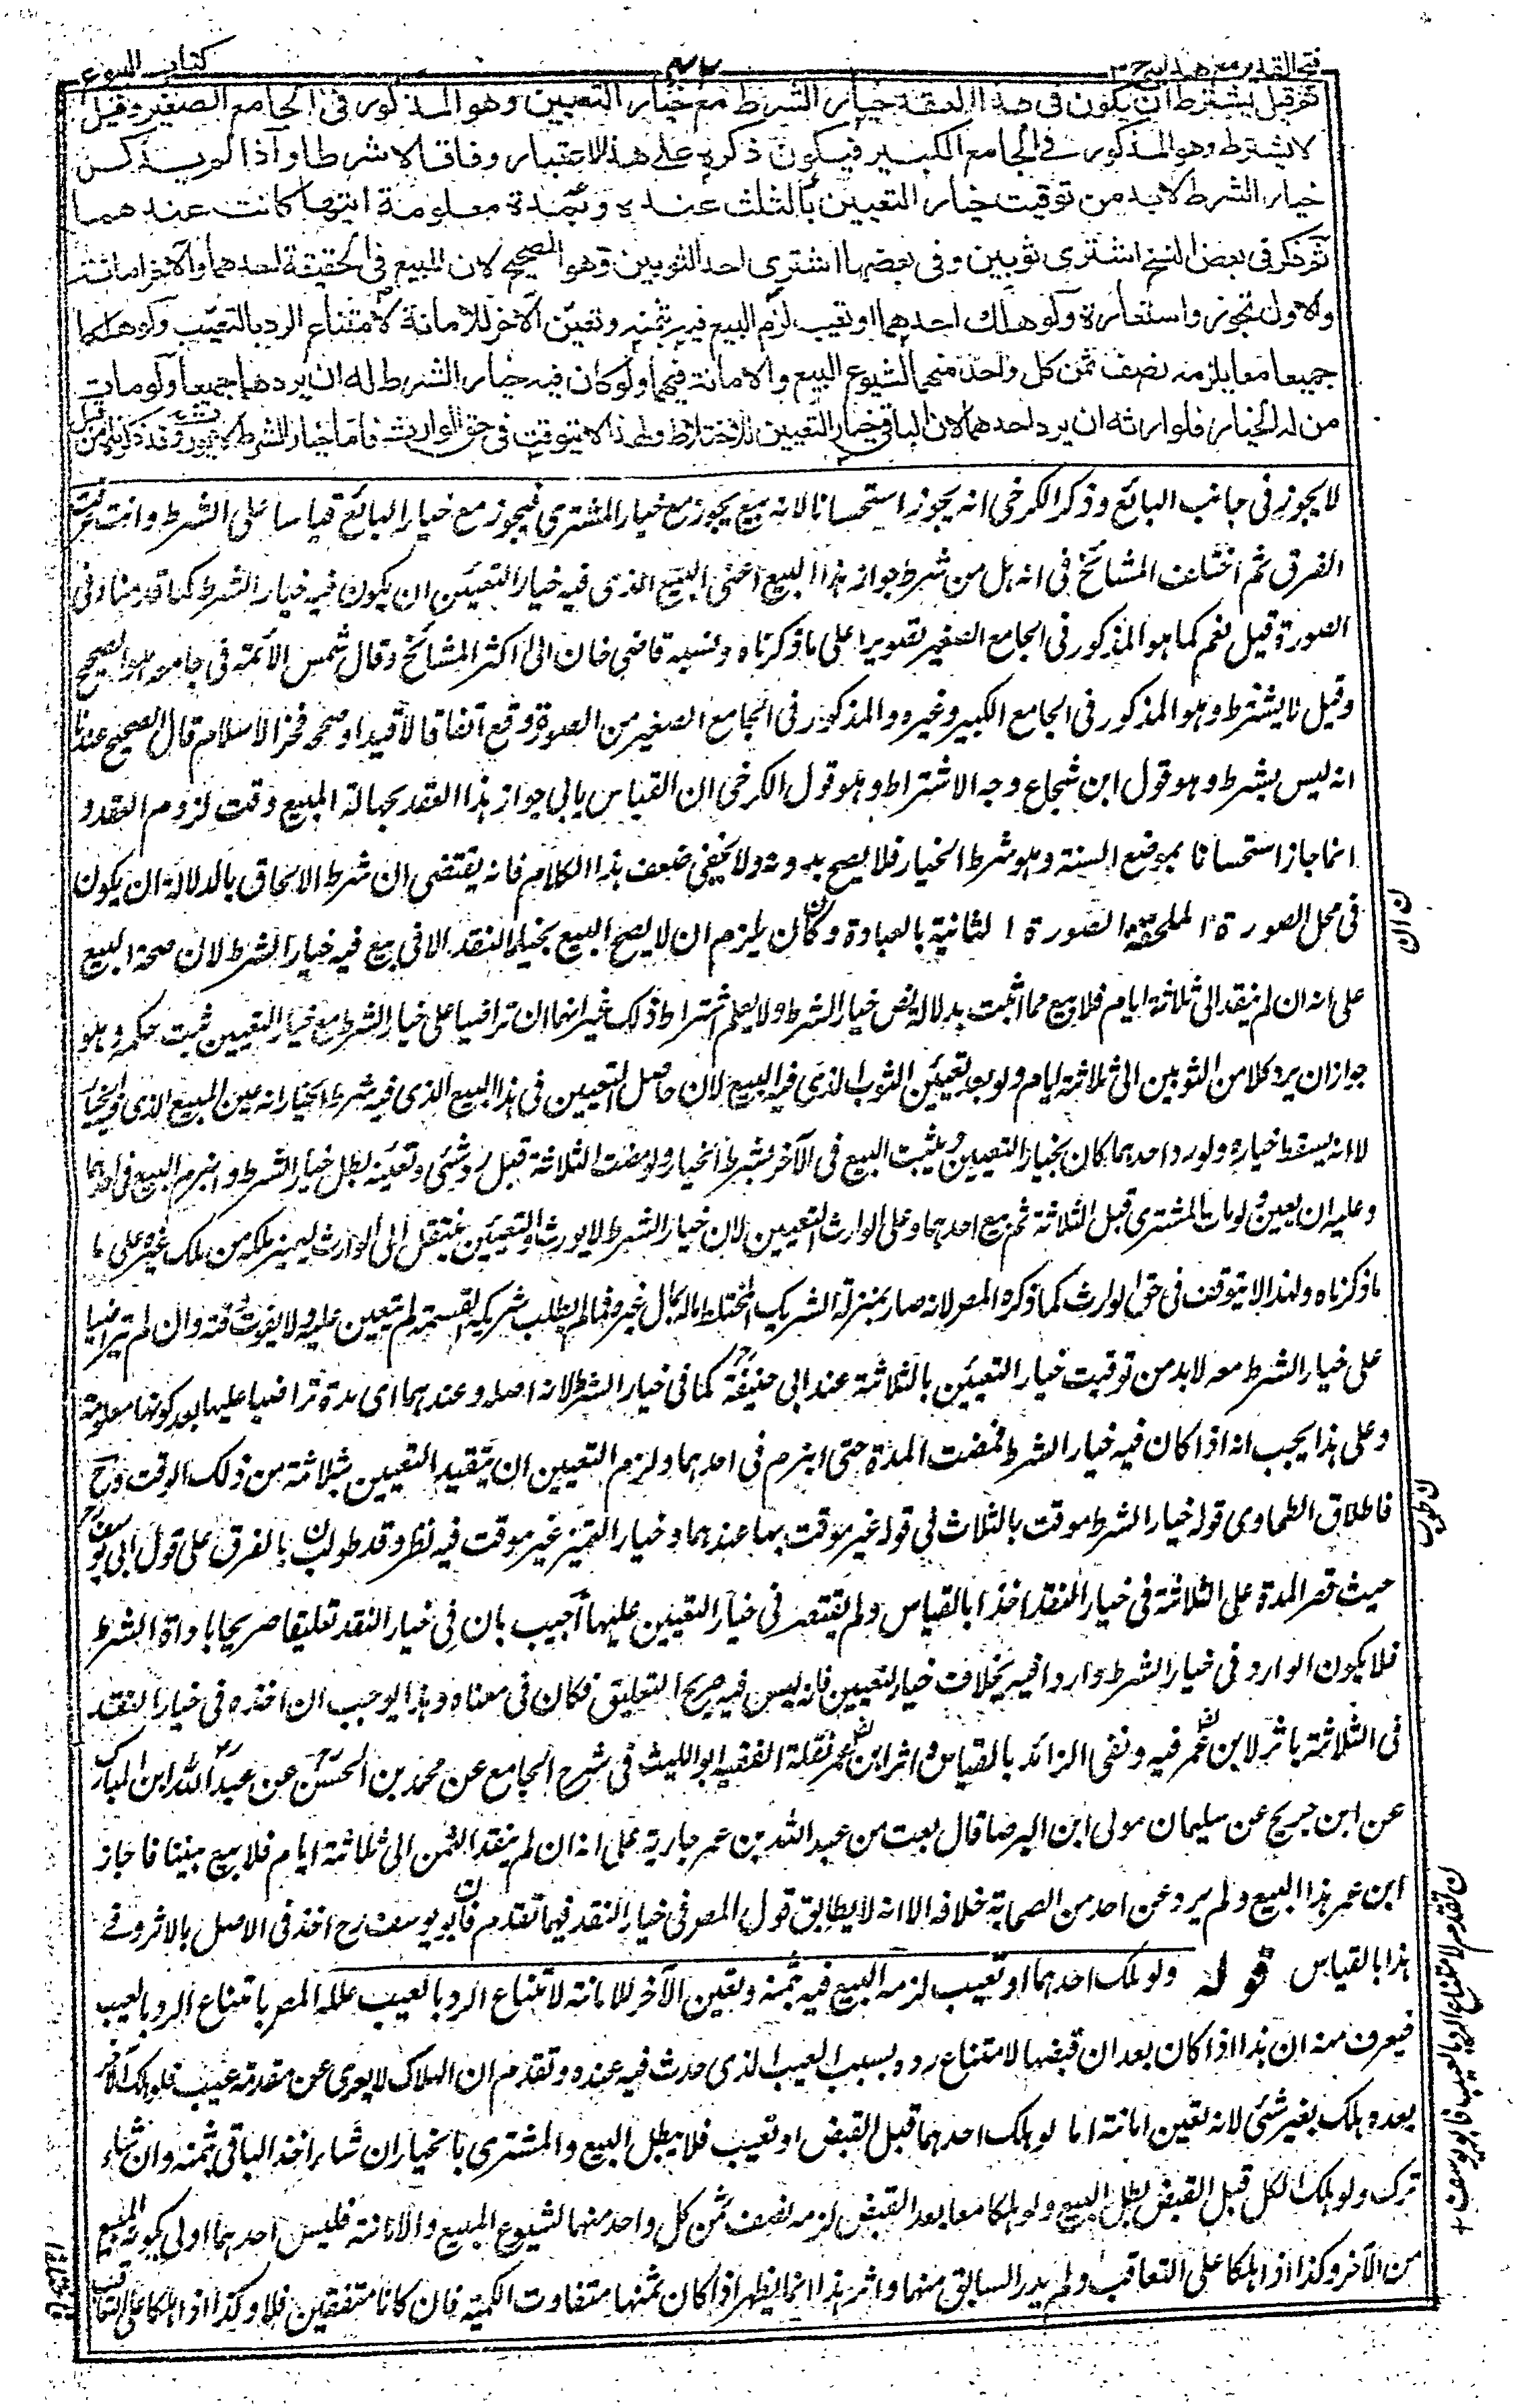 فتح القدير مع هدايه ج ٣
كتاب البيوع
ثم قيل يشترط ان يكون فى هذا العقد خيار الشرط مع خيار التعيين وهو المذكور فى الجامع الصغير وقيل
لا يشترط وهو المذكور فى الجامع الكبير فيكون ذكره على هذا الاعتبار وفاقا لا شرطا واذا لم يذكر
خيار الشرط لا بد من توقيت خيار التعيين بالثلث عنده وبمدة معلومة ايتها كانت عندهما
ثم ذكر فى بعض النسخ اشترى ثوبين وفى بعضها اشترى احد الثوبين وهو الصحيح لان المبيع فى الحقيقة احدهما والآخر امانة
والاول تجوز واستعارة ولو هلك احدهما او تعيب لزم البيع فيه بثمنه وتعين الآخر للامانة لامتناع الرد بالتعيب ولو هلكا
جميعا معا يلزمه نصف ثمن كل واحد منهما لشيوع البيع والامانة فيهما ولو كان فيه خيار الشرط له ان يردهما جميعا ولو مات
من له الخيار فلوارثه ان يرد احدهما لان الباقى خيار التعيين للاختلاط ولهذا لا يتوقت فى حق الوارث فاما خيار الشرط لا يورث وقد ذكرناه من قبل
لا يجوز فى جانب البائع وذكر الكرخى انه يجوز استحسانا لانه بيع يجوز مع خيار المشترى فيجوز مع خيار البائع قياسا على الشرط وانت عرفت
الفرق ثم اختلف المشائخ فى انه هل من شرط جواز هذا البيع اعنى البيع الذى فيه خيار التعيين ان يكون فيه خيار الشرط كما قدمنا فى
الصورة قيل نعم كما هو المذكور فى الجامع الصغير تصويرا على ما ذكرناه ونسبه قاضى خان الى اكثر المشائخ وقال شمس الائمة فى جامعه هو الصحيح
وقيل لا يشترط وهو المذكور فى الجامع الكبير وغيره والمذكور فى الجامع الصغير من الصورة وقع اتفاقا لا قيدا وصححه فخر الاسلام قال الصحيح عندنا
انه ليس بشرط وهو قول ابن شجاع وجه الاشتراط وهو قول الكرخى ان القياس يابى جواز هذا العقد بجهالة المبيع وقت لزوم العقد و
انما جاز استحسانا بموضع السنة وهو شرط الخيار فلا يصح بدونه ولا يخفى ضعف هذا الكلام فانه يقتضى ان شرط الالحاق بالدلالة ان يكون
فى محل الصورة الملحقة الصورة الثانية بالعبادة وكان يلزم ان لا يصح البيع بخيار النقد الا فى بيع فيه خيار الشرط لان صحة البيع
على انه ان لم ينقد الى ثلاثة ايام فلا بيع مما اثبت بدلالة نص خيار الشرط ولا يعلم اشتراط ذلك غير انهما ان تراضيا على خيار الشرط مع خيار التعيين ثبت حكمه وهو
جواز ان يرد كلا من الثوبين الى ثلاثة ايام ولو بعد تعيين الثوب الذى فيه البيع لان حاصل التعيين فى هذا البيع الذى فيه شرط الخيار انه عين المبيع الذى فيه الخيار
لا انه يسقط خياره ولو رد احدهما كان بخيار التعيين ويثبت البيع فى الآخر بشرط الخيار ولو مضت الثلاثة قبل رد شئ وتعينه بطل خيار الشرط وانبرم البيع فى احدهما
وعليه ان يعين ولو مات المشترى قبل الثلاثة ثم بيع احدهما وعلى الوارث التعيين لان خيار الشرط لا يورث والتعيين ينتقل الى الوارث ليميز ملكه من ملك غيره على ما
ما ذكرناه ولهذا لا يتوقف فى حق الوارث كما ذكره المصـ لانه صار بمنزلة الشريك اختلط ماله بمال غيره فما لم يطلب شريكه القسمة لم يتعين عليه ولا يفوت وان لم يتراضيا
على خيار الشرط معه لا بد من توقيت خيار التعيين بالثلاثة عند ابى حنيفة رح كما فى خيار الشرط لانه اصله وعندهما اى مدة تراضيا عليها بعد كونها معلومة
وعلى هذا يجب انه اذا كان فيه خيار الشرط فمضت المدة حتى انبرم فى احدهما ولزم التعيين ان يتقيد التعيين بثلاثة من ذلك الوقت وح
فاطلاق الطحاوى قوله خيار الشرط موقت بالثلاث فى قوله غير موقت بها عندهما وخيار التميز غير موقت فيه نظر وقد طولب بالفرق على قول ابى يوسف رح
حيث قصر المدة على الثلاثة فى خيار النقد اخذا بالقياس ولم يقتصر فى خيار التعيين عليها اجيب بان فى خيار النقد تعليقا صريحا باداة الشرط
فلا يكون الوارد فى خيار الشرط واردا فيه بخلاف خيار التعيين فانه ليس فيه صريح التعليق فكان فى معناه وهذا يوجب ان اخذه فى خيار النقد
فى الثلاثة باثر لابن عمر فيه ونفى الزائد بالقياس واثر ابن عمر نقله الفقيه ابو الليث فى شرح الجامع عن محمد بن الحسن رح عن عبد الله ابن المبارك
عن ابن جريج عن سليمان مولى ابن البرصا قال بعت من عبد الله بن عمر جارية على انه ان لم ينقد الثمن الى ثلاثة ايام فلا بيع بيننا فاجاز
ابن عمر هذا البيع ولم يرو عن احد من الصحابة خلافه الا انه لا يطابق قول المصـ فى خيار النقد فيما تقدم فابو يوسف رح اخذ فى الاصل بالاثر وفى
هذا بالقياس قوله ولو هلك احدهما او تعيب لزمه البيع فيه بثمنه وتعين الآخر للامانة لامتناع الرد بالعيب علله المصـ بامتناع الرد بالعيب
فيعرف منه ان هذا اذا كان بعد ان قبضها لامتناع رده بسبب العيب الذى حدث فيه عنده وتقدم ان الهلاك لا يعرى عن مقدمة عيب فلو هلك الآخر
بعده هلك بغير شئ لانه تعين امانة اما لو هلك احدهما قبل القبض او تعيب فلا يبطل البيع والمشترى بالخيار ان شاء اخذ الباقى بثمنه وان شاء
ترك ولو هلك الكل قبل القبض بطل البيع ولو هلكا معا بعد القبض لزمه نصف ثمن كل واحد منهما لشيوع المبيع والامانة فليس احدهما اولى بكونه المبيع
من الآخر وكذا اذا هلكا على التعاقب ولم يدر السابق منهما واثر هذا انما يظهر اذا كان ثمنهما متفاوت الكمية فان كانا متفقين فلا وكذا اذا هلكا على التعاقب